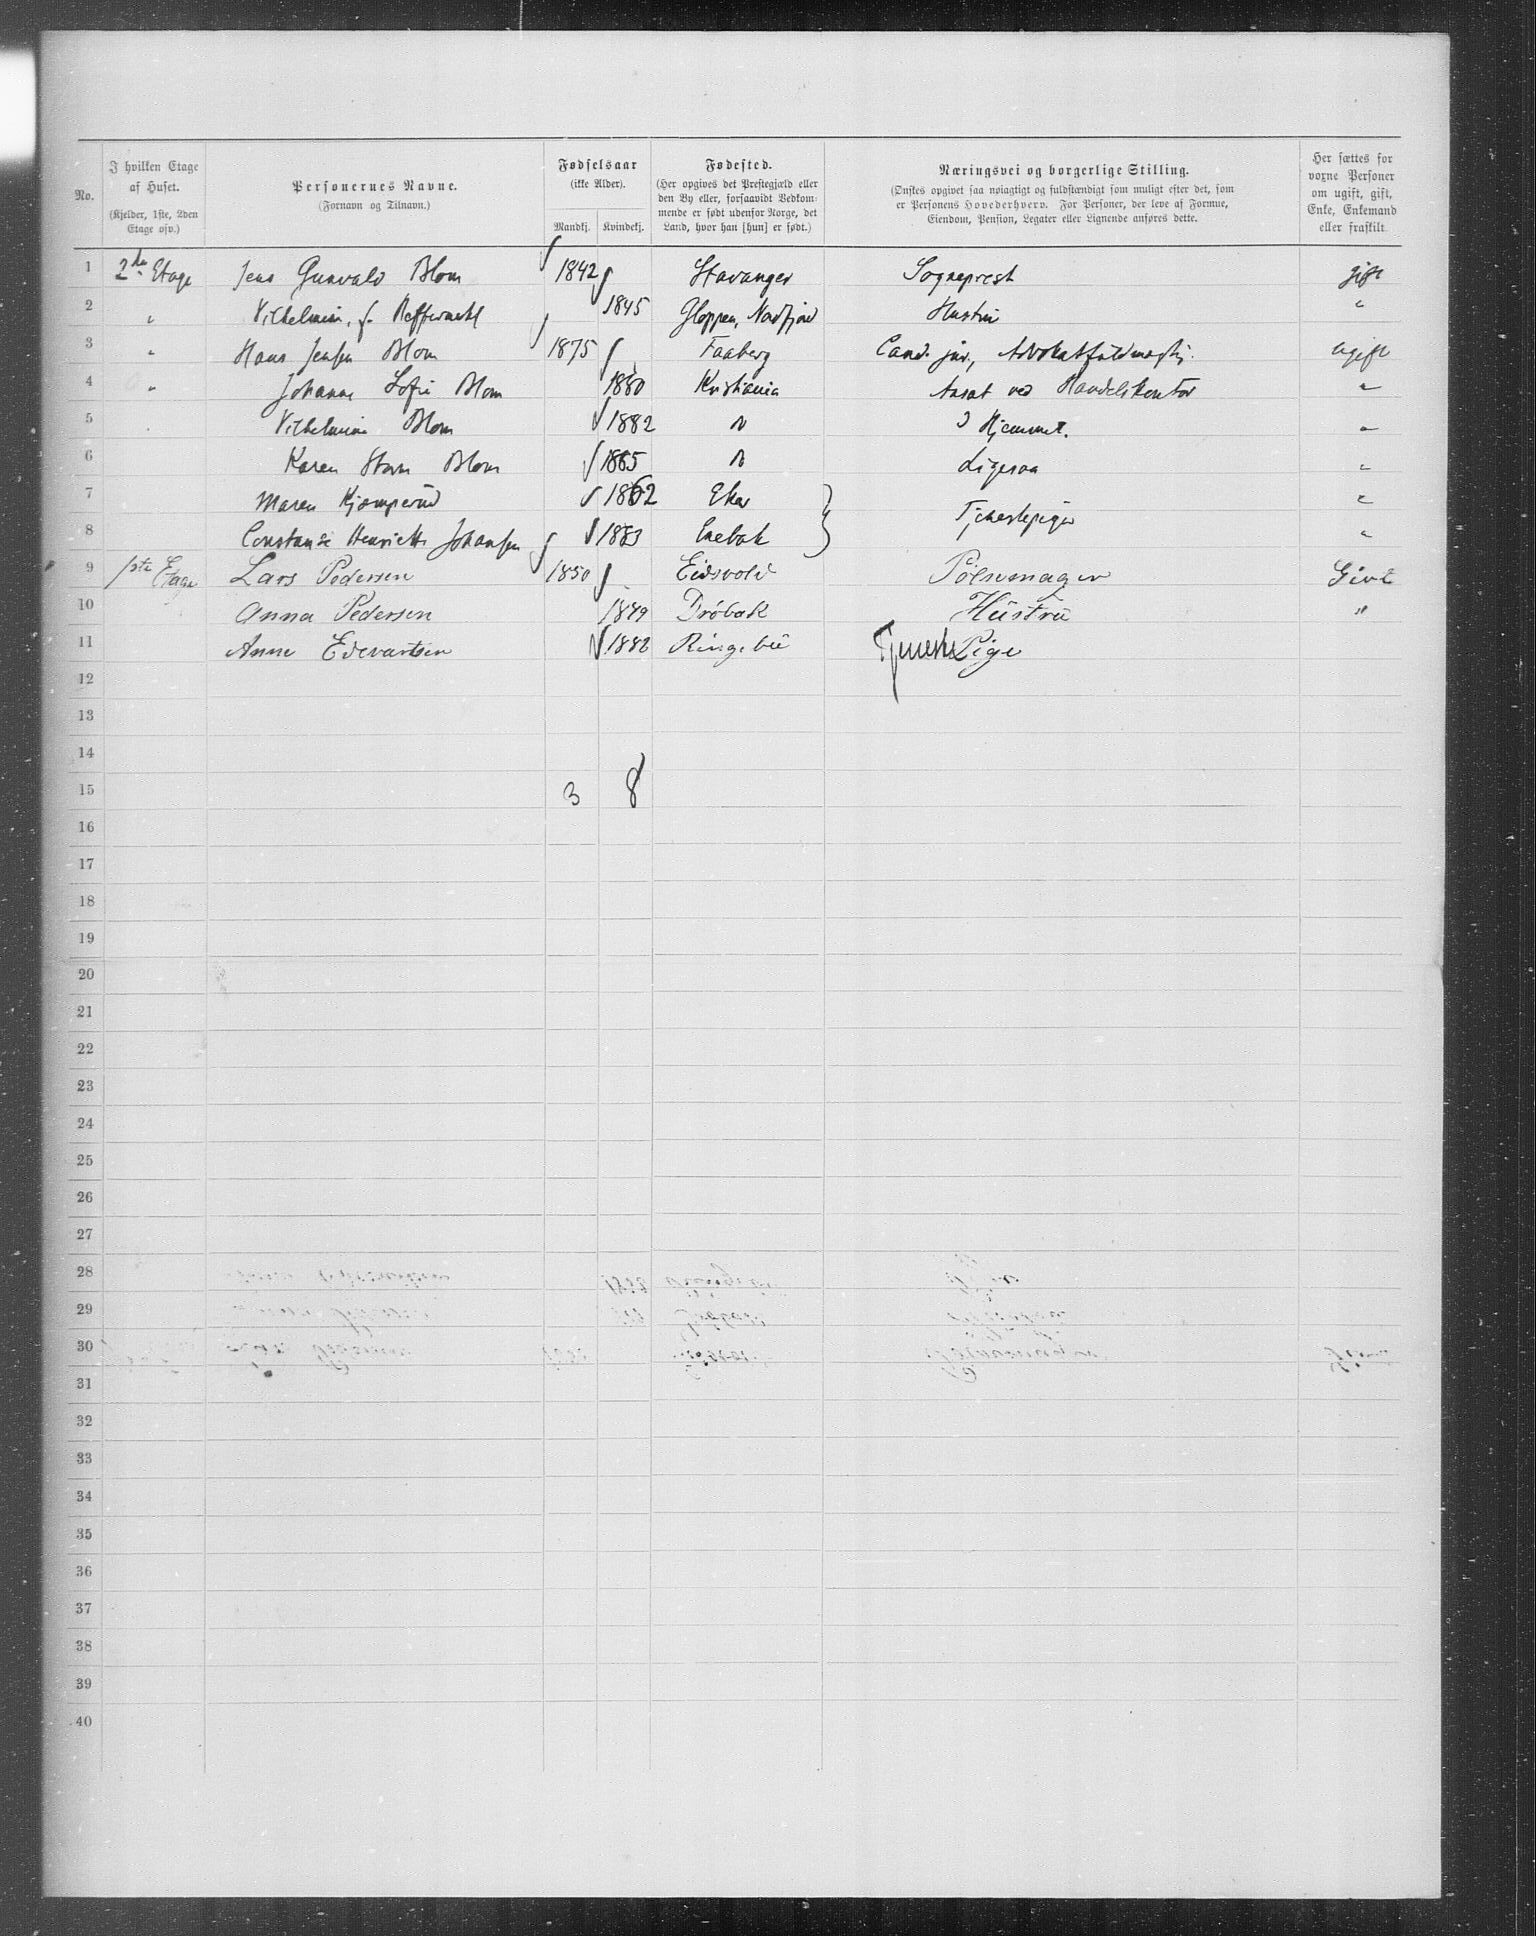 No.
I hvilken Etage af Huset.
(Kjelder, 1ste, 2den Etage osv.)
Personernes Navne.
(Fornavn og Tilnavn.)
Fødselsaar
(ikke Alder).
Mandkj. Kvindekj.
Fødested.
(Her opgives det Prestegjæld eller den By eller, forsaavidt Vedkommende er født udenfor Norge, det Land, hvor han [hun] er født.)
Næringsvei og borgerlige Stilling.
(Ønskes opgivet saa nøiagtigt og fuldstændigt som muligt efter det, som er Personens Hovederhverv. For Personer, der leve af Formue, Eiendom, Pension, Legater eller Lignende anføres dette.
Her sættes for voxne Personer om ugift, gift, Enke, Enkemand eller fraskilt.
1 2den Etage Jens Gunvald Blom 1842 Stavanger Sogneprest gift
2 " Vilhelmine, f. 1845 Gloppen, Nordfjord Hustru "
3 " Hans Jensen Blom 1875 Faaberg Cand. jur., Advokatfuldmægtig. ugift
4 " Johanne Sofie Blom 1880 Kristiania Ansat ved Handelskontor "
5 Vilhelmine Blom 1882 " I Hjemmet. "
6 Karen Blom 1885 " Ligesaa "
7 Maren Kjæmperud 1862 Eker } Tjenestepiger "
8 Constanse Henriette Johansen 1883 Enebak "
9 1ste Etage Lars Pedersen 1850 Eidsvold Pölsemager Givt
10 Anna Pedersen 1849 Dröbak Hustru "
11 Anne Edevartsen 1882 Ringebu Tjeneste Pige
12
13
14
15 3 8
16
17
18
19
20
21
22
23
24
25
26
27
28
29
30
31
32
33
34
35
36
37
38
39
40